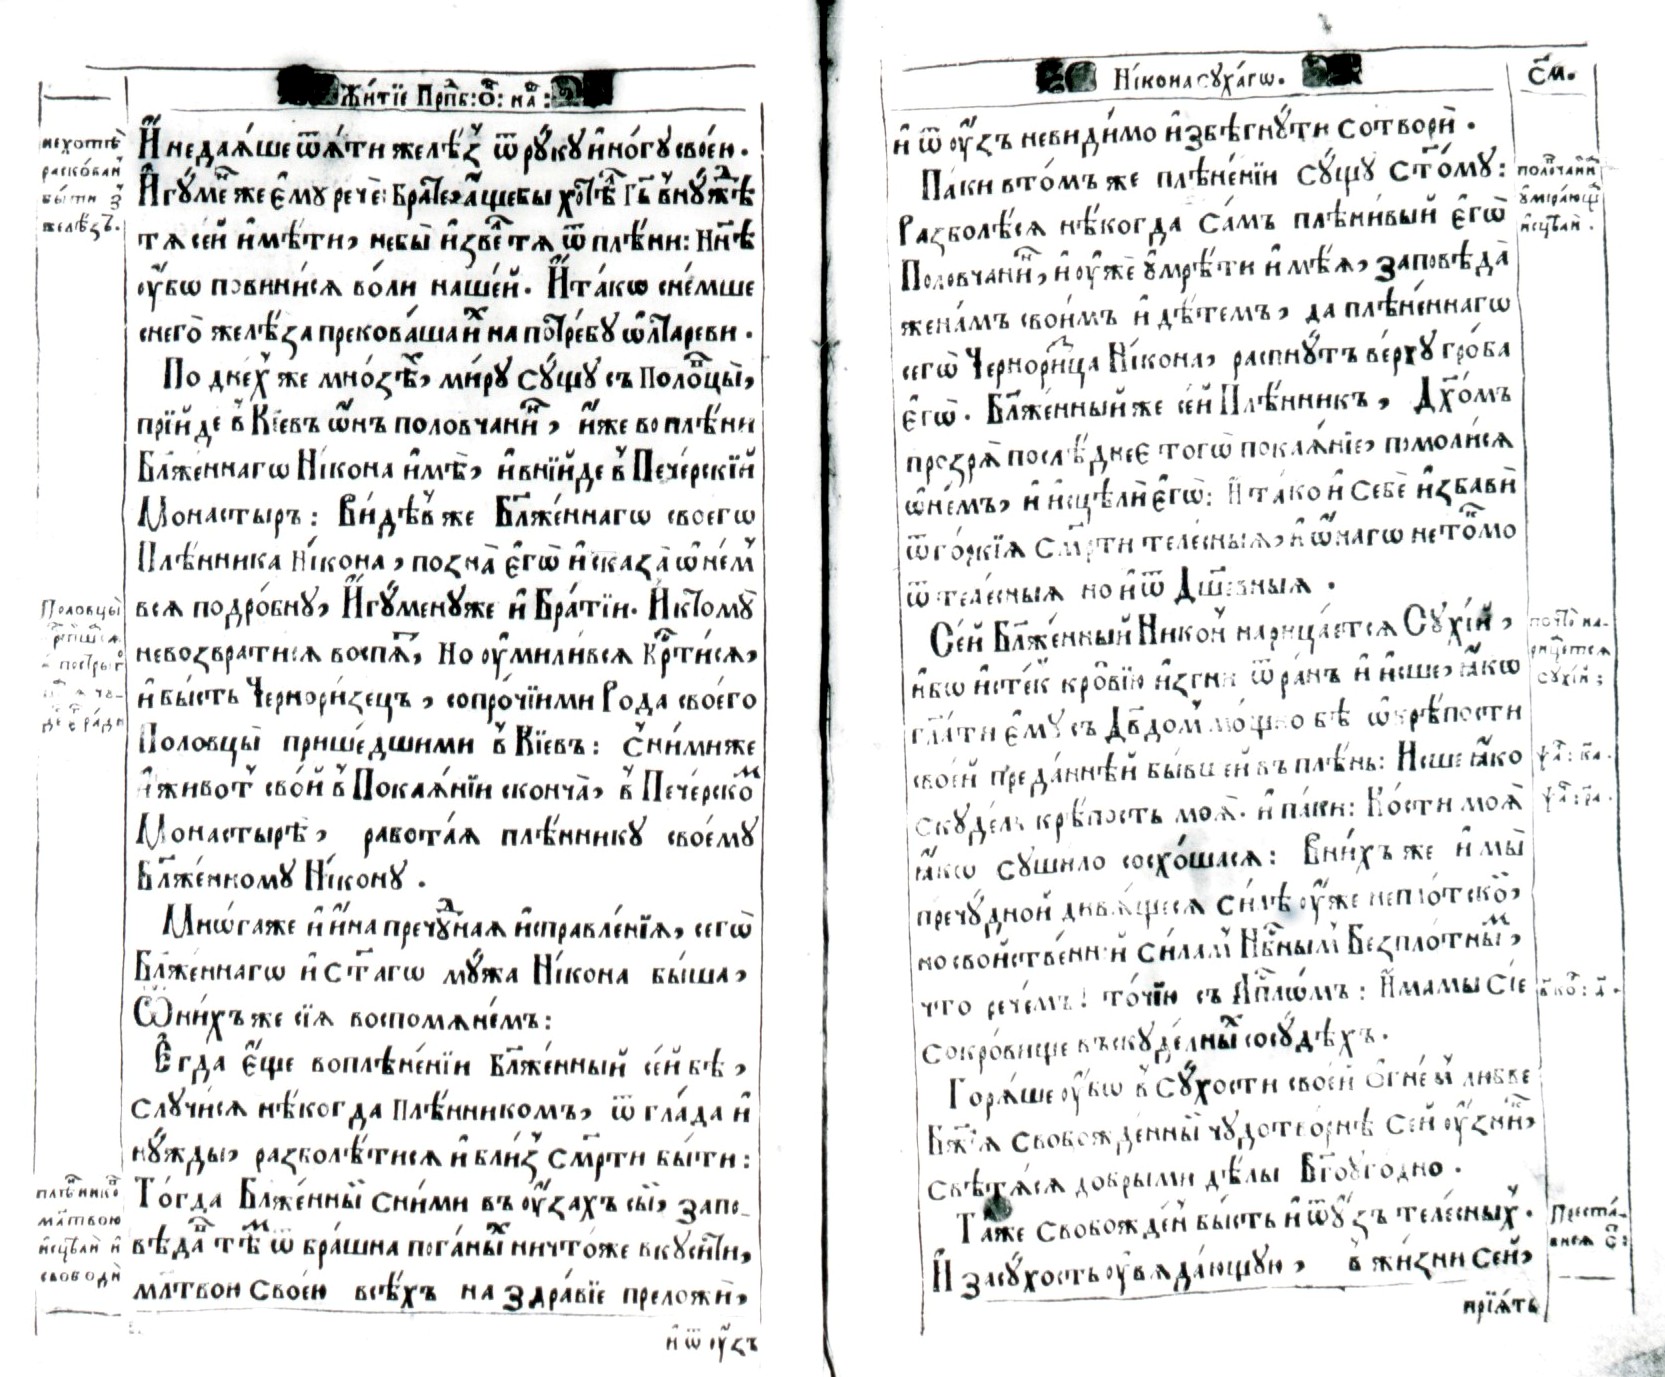 Жи́тїе Прпⷣб: Ѻ҃: на́:
нехотѣ̀
раскован
бы́ти ѿ
желѣ́зъ.
И҆ не даѧ́ше ѿѧ́ти желѣ́з ѿ рꙋ́кꙋ и҆ но́гꙋ своє́ю.
И҆гꙋ́мен же є҆мꙋ речѐ: Бра́те, а҆ще бы хотѣ́л Гдⷭ҇ь в нꙋ́ждѣ
тѧ се́й и҆мѣ́ти, не бы̀ и҆зве́л тѧ ѿ плѣ́ни: Нн҃ѣ
ᲂу҆́бѡ повини́сѧ во́ли на́шей. И҆ та́кѡ сне́мше
снегѡ̀ желѣ́за прекова́ша и҆х на потре́бꙋ ѡ҆лтаре́ви.
По дне́х же мно́зѣх, ми́рꙋ сꙋ́щꙋ съ По́ловцы̀,
прїи́де в Кі́евъ ѡ҆́нъ половчанин, и҆́же во плѣ́ни
Бл҃же́ннагѡ Ні́кона и҆мѣ̀, и҆ вни́йде в Пече́рскїй
Монасты́ръ: Ви́дѣв же Бл҃же́ннагѡ своегѡ
Плѣ́нника Ні́кона, позна̀ є҆гѡ̀ и҆ сказа̀ ѡ҆ не́м
всѧ подро́бнꙋ, И҆гꙋ́менꙋ же и҆ Бра́тїи. И҆ ктомꙋ̀
не возврати́сѧ воспѧ́т, Но ᲂу҆мили́всѧ Крⷭ҇ти́сѧ,
и҆ бы́сть Черноризе́цъ, со про́чїими Ро́да своего
По́ловцы̀ прише́дшими в Кі́евъ: С ни́ми же
и҆ живо́т сво́й в Покаѧ́нїи сконча̀, в Пече́рско
Монастырѣ̀, рабо́таѧ плѣ́нникꙋ своє́мꙋ
Бл҃же́нномꙋ Ні́конꙋ.
По́ловцы̀
Мнѡ́га же и҆ и҆́на пречꙋ́днаѧ и҆справле́нїѧ, сегѡ̀
Бл҃же́ннагѡ и҆ Ст҃а́гѡ мꙋ́жа Ні́кона бы́ша,
Ѿ ни́хъ же сїѧ̀ воспомѧне́мъ:
Є҆гда̀ є҆щѐ во плѣне́нїи Бл҃же́нный се́й бѣ̀,
слꙋчи́сѧ нѣ́когда Плѣ́нникомъ, ѿ гла́да и҆
нꙋ́жды, разболѣ́тисѧ и҆ бли́з См҃рти бы́ти:
Тогда̀ Бл҃же́нный с ни́ми въ ᲂу҆́захъ сы̀, запо-
вѣ́да тѣ́м ѿ бра́шна пога́ных ничто́же вкꙋси́ти,
мл҃твою Своє́ю всѣ́хъ на здра́вїе преложѝ,
плѣ́ннико
мл҃твою
и҆сцѣлѝ и҆
свободѝ
и҆ ѿ ᲂу҆́зъ
Ні́кона сꙋха́гѡ.
С҃м.
и҆ ѿ ᲂу҆́зъ неви́димо и҆збѣ́гнꙋти сотворѝ.
Па́ки в то́мъ же плѣне́нїи сꙋ́щꙋ ст҃о́мꙋ:
Разболѣ́сѧ нѣ́когда са́мъ плѣни́вый є҆гѡ̀
По́ловчанин, и҆ ᲂу҆жѐ ᲂу҆мрѣ́ти и҆мѣ́ѧ, заповѣ́да
жена́мъ свои́мъ и҆ дѣ́темъ, да плѣне́ннагѡ
сегѡ̀ Черноризца Ні́кона, распнꙋ́тъ ве́рхꙋ гро́ба
є҆гѡ̀. Бл҃же́нный же се́й Плѣ́нникъ, Дх҃о́мъ
прозрѧ̀ послѣ́днее тогѡ̀ покаѧ́нїе, помоли́сѧ
ѡ҆ не́мъ, и҆ и҆сцѣлѝ є҆гѡ̀: И҆ та́ко и҆ Себѐ и҆зба́ви
ѿ го́ркїѧ См҃рти теле́сныѧ, и҆ ѡ҆́нагѡ не то́кмо
ѿ теле́сныѧ но и҆ ѿ Дш҃е́вныѧ.
половчани́н
ᲂу҆мира́ющ
и҆сцѣлѝ.
Се́й Бл҃же́нный Ни́кон нарица́етсѧ Сꙋхі́й,
и҆́бѡ и҆сте́к кро́вїю и҆згнѝ ѿ ра́нъ и҆ и҆́сше, ꙗ҆́кѡ
гл҃а́ти є҆мꙋ̀ съ Дв҃дом мо́щно бѣ̀ ѡ҆ крѣ́пости
своє́й преда́ннѣй бы́вшей въ плѣ́нъ: И҆́сше ꙗ҆́ко
скꙋде́ль крѣ́пость моѧ̀. и҆ па́ки: Ко́сти моѧ̀
ꙗ҆́кѡ сꙋши́ло сосхо́шасѧ: В ни́хъ же и҆ мы̀
пречꙋ́дной дивѧ́щесѧ си́лѣ ᲂу҆жѐ не пло́тско́й,
но свойственной си́лам Нбⷭ҇ным Безпло́тным,
что рече́мъ! то́чїю съ А҆пⷭ҇ломъ: И҆́мамы Сїѐ
сокро́вище въ скꙋде́лных сосꙋ́дѣхъ.
почто̀ на-
рица́етсѧ
сꙋхі́й:
Горѧ́ше ᲂу҆́бѡ в сꙋ́хости свое́й Ѻ҆гне́м любве
Бж҃їѧ свобожде́нный чꙋдотво́рнѣ Се́й ᲂу҆́зник,
свѣтѧ́сѧ до́брыми дѣ́лы Бг҃оꙋго́дно.
Та́же свобожде́н бы́сть и҆ ѿ ᲂу҆́зъ теле́сных.
И҆ за сꙋ́хость ᲂу҆вѧда́ющꙋю, в жи́зни Се́й,
Преста́-
висѧ
прїѧ́тъ